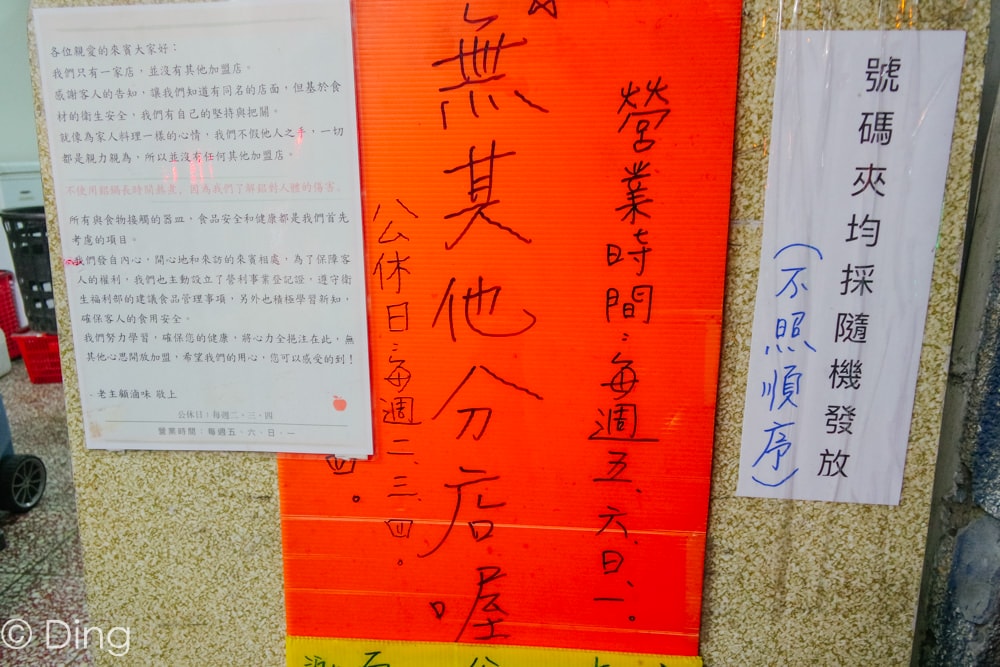 各位親愛的來賓大家好：
我們只有一家店，並沒有其他加盟店。
感謝客人的告知，讓我們知道有同名的店面，但基於食
材的衛生安全，我們有自己的堅持與把關。
就像為家人料理一樣的心情，我們不假他人之手，一切
都是親力親為，所以並沒有任何其他加盟店。
不使用鋁鍋長時間熬煮，因為我們了解鋁對人體的傷害。
所有與食物接觸的器皿，食品安全和健康都是我們首先
考慮的項目。
我們發自內心，開心地和來訪的來賓相處，為了保障客
人的權利，我們也主動設立了營利事業登記證，遵守衛
生福利部的建議食品管理事項，另外也積極學習新知，
確保客人的食用安全。
我們努力學習，確保您的健康，將心力全挹注在此，無
其他心思開放加盟，希望我們的用心，您可以感受的到！
- 老主顧滷味 敬上
公休日：每週二、三、四
營業時間：每週五、六、日、一
營業時間：每週五、六、日、一。
無其他分店喔
公休日：每週二、三、四。
四。
號碼夾均採隨機發放
（不照順序）
© Ding